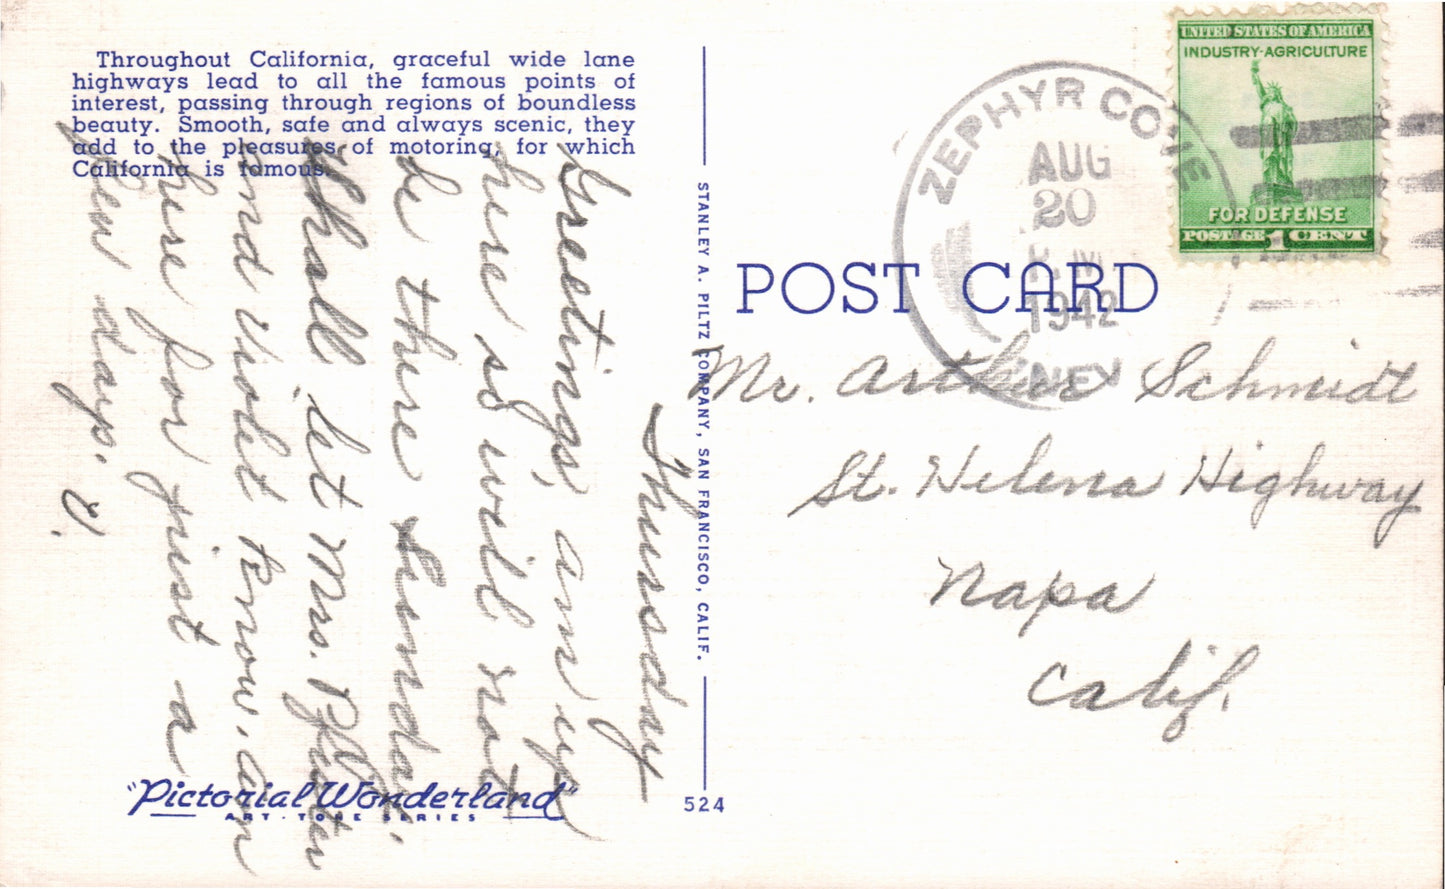 Throughout California, graceful wide lane
highways lead to all the famous points of
interest, passing through regions of boundless
beauty. Smooth, safe and always scenic, they
add to the pleasures of motoring, for which
California is famous.
Thursday
Greetings, am up
here so will not
be there Sunday.
Shall let Mrs.
and Violet know. Am
here for just a
few days. V.
"Pictorial Wonderland"
ART-TONE SERIES
STANLEY A. PILTZ COMPANY, SAN FRANCISCO, CALIF.
524
POST CARD
ZEPHYR COVE
AUG
20
P.M
1942
NEV
UNITED STATES OF AMERICA
INDUSTRY-AGRICULTURE
FOR DEFENSE
POSTAGE 1 CENT
Mr. Arthur Schmidt
St. Helena Highway
Napa
Calif.